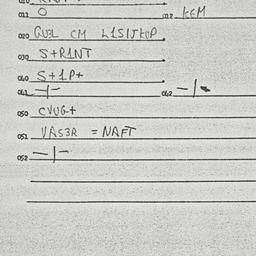 011 O 012 KEM
020 GU3L CM L1S1JKUP
030 S+R1NT
040 S+1P+
041 -/- 042 -/-
050 CVUG+
051 VAS3R = NAFT
052 -/-